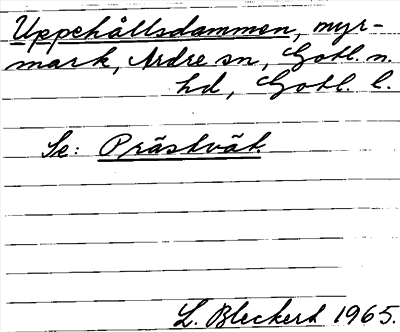 Uppehållsdammen, myr-
mark, Ardre sn, Gotl. n.
hd, Gotl. l.
Se: Prästvät.
L. Bleckert 1965.